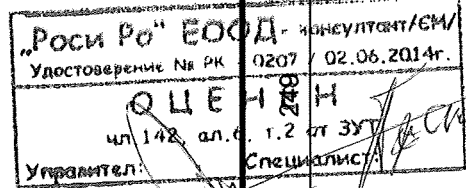 „Роси Ро" ЕООД - консултант/ЕМ/
Удостоверение № РК - 0207 / 02.06.2014г.
ОЦЕНЕН
249
чл.142, ал.6, т.2 от ЗУТ
Управител: Специалист: